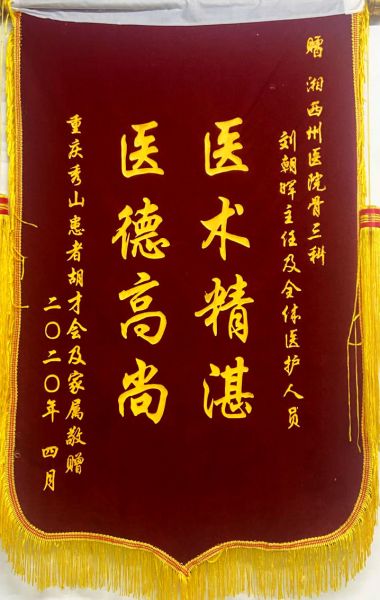 赠 湘西州医院骨三科
刘朝晖主任及全体医护人员
医术精湛
医德高尚
重庆秀山患者胡才会及家属敬赠
二〇二〇年 四月